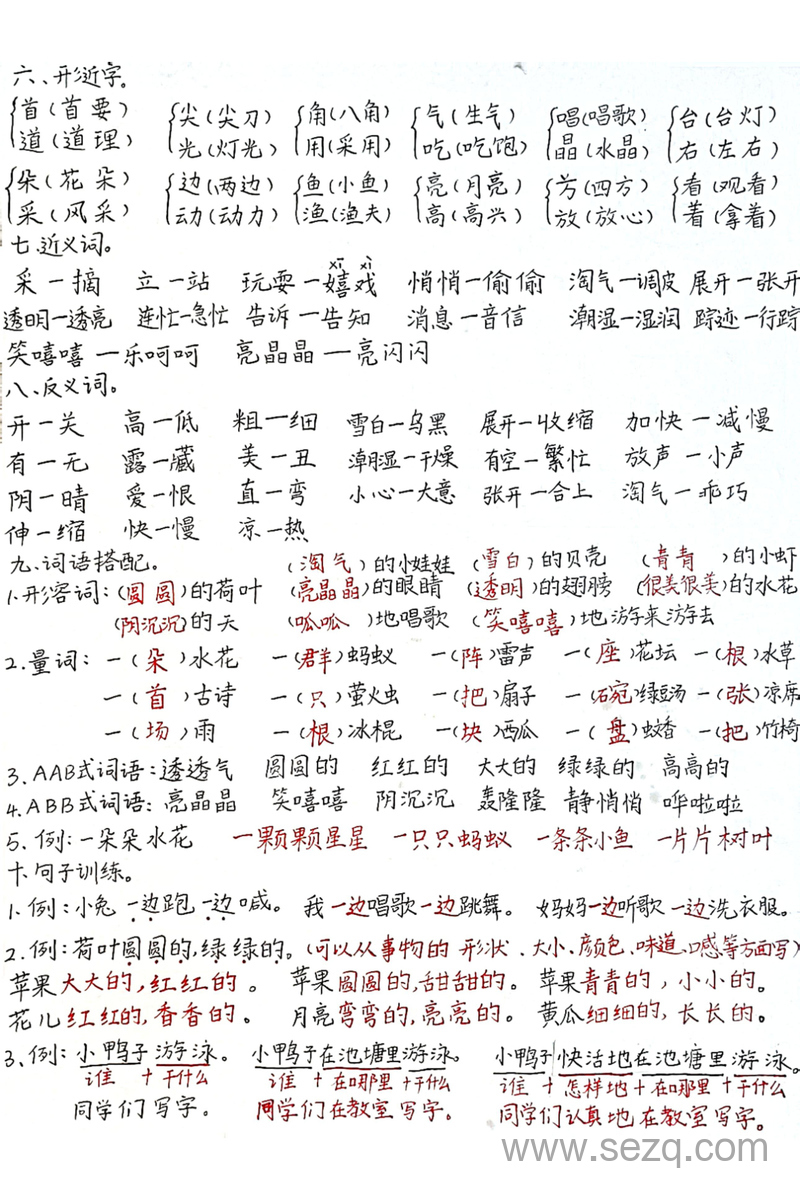 六、形近字。
首(首要) 尖(尖刀) 角(八角) 气(生气) 唱(唱歌) 台(台灯)
道(道理) 光(灯光) 用(采用) 吃(吃饱) 晶(水晶) 右(左右)
朵(花朵) 边(两边) 鱼(小鱼) 亮(月亮) 方(四方) 看(观看)
采(风采) 动(动力) 渔(渔夫) 高(高兴) 放(放心) 着(拿着)
七、近义词。
xī xì
采—摘 立—站 玩耍—嬉戏 悄悄—偷偷 淘气—调皮 展开—张开
透明—透亮 连忙—急忙 告诉—告知 消息—音信 潮湿—湿润 踪迹—行踪
笑嘻嘻—乐呵呵 亮晶晶—亮闪闪
八、反义词。
开—关 高—低 粗—细 雪白—乌黑 展开—收缩 加快—减慢
有—无 露—藏 美—丑 潮湿—干燥 有空—繁忙 放声—小声
阴—晴 爱—恨 直—弯 小心—大意 张开—合上 淘气—乖巧
伸—缩 快—慢 凉—热
九、词语搭配。 (淘气)的小娃娃 (雪白)的贝壳 (青青)的小虾
1.形容词:(圆圆)的荷叶 (亮晶晶)的眼睛 (透明)的翅膀 (很美很美)的水花
(阴沉沉)的天 (呱呱)地唱歌 (笑嘻嘻)地游来游去
2.量词:一(朵)水花 一(群)蚂蚁 一(阵)雷声 一(座)花坛 一(根)水草
一(首)古诗 一(只)萤火虫 一(把)扇子 一(碗)绿豆汤 一(张)凉席
一(场)雨 一(根)冰棍 一(块)西瓜 一(盘)蚊香 一(把)竹椅
3.AAB式词语:透透气 圆圆的 红红的 大大的 绿绿的 高高的
4.ABB式词语:亮晶晶 笑嘻嘻 阴沉沉 轰隆隆 静悄悄 哗啦啦
5.例:一朵朵水花 一颗颗星星 一只只蚂蚁 一条条小鱼 一片片树叶
十、句子训练。
1.例:小兔一边跑一边喊。 我一边唱歌一边跳舞。 妈妈一边听歌一边洗衣服。
2.例:荷叶圆圆的,绿绿的。(可以从事物的形状、大小、颜色、味道、口感等方面写)
苹果大大的,红红的。 苹果圆圆的,甜甜的。 苹果青青的,小小的。
花儿红红的,香香的。 月亮弯弯的,亮亮的。 黄瓜细细的,长长的。
3.例:小鸭子游泳。 小鸭子在池塘里游泳。 小鸭子快活地在池塘里游泳。
谁+干什么 谁+在哪里+干什么 谁+怎样地+在哪里+干什么
同学们写字。 同学们在教室写字。 同学们认真地在教室写字。
www.sezq.com